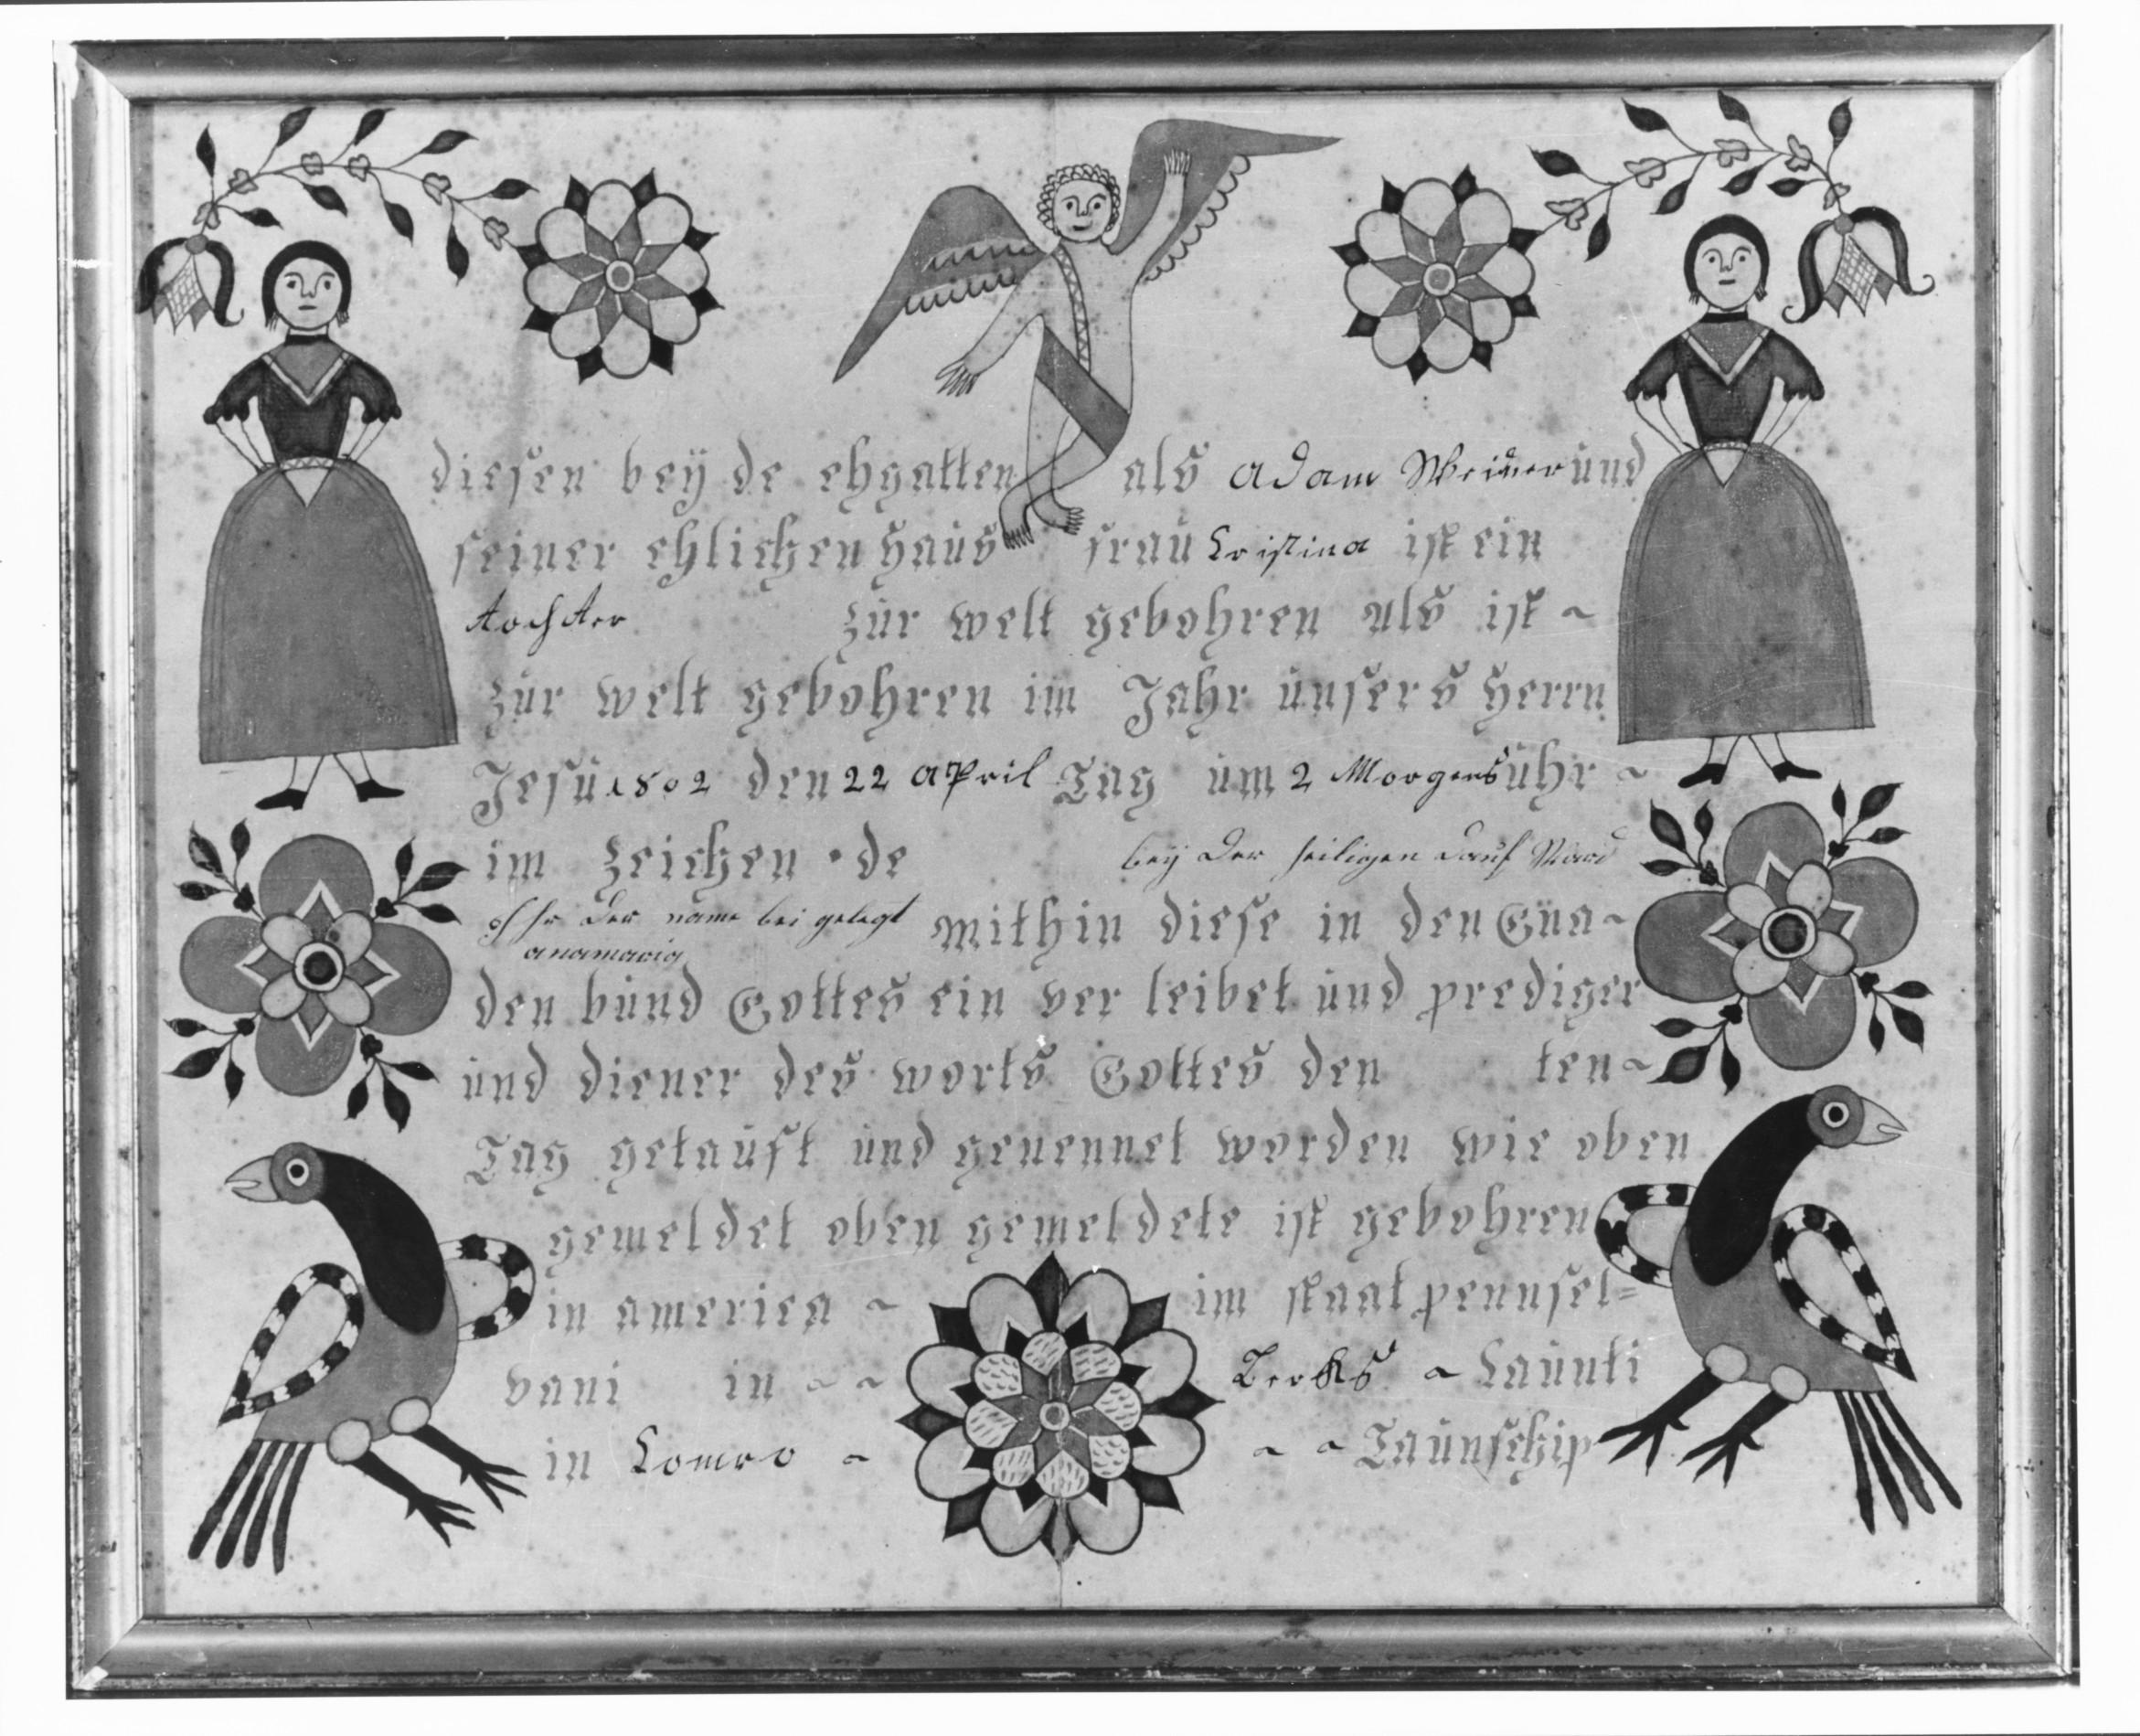 diesen beÿ de ehgatten als adam Weiver und
seiner ehlichen haüs fraü Cristina ist ein
tochter zür welt gebohren als ist ~
zür welt gebohren im Jahr ünsers herrn
Jesü 1802 den 22 april Tag üm 2 Morgens ühr ~
im zeichen · de bey der heiligen dauf Ward
Ihr der name bei gelegt mithin diese in den Gna~
anamaria
den bünd Gottes ein ver leibet ünd prediger
ünd diener des worts Gottes den ten ~
Tag getaüft ünd genennet worden wie oben
gemeldet oben gemeldete ist gebohren
in america ~ im staat pennsel=
vani in ~ ~ Berks ~ Caünti
in Comro ~ ~ ~ Taünschip